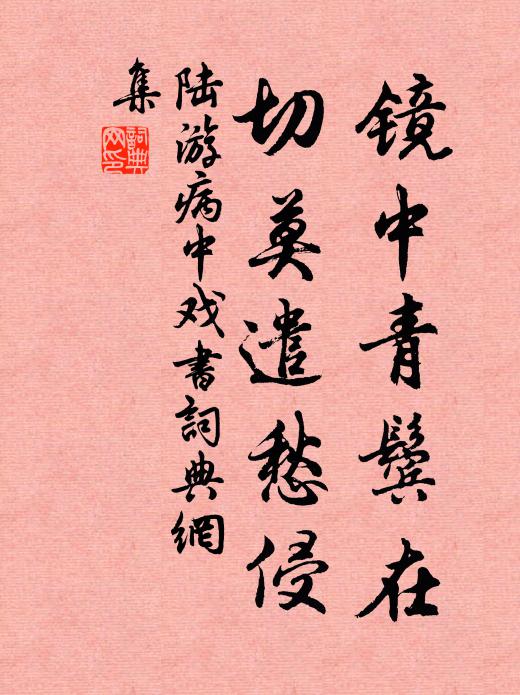 镜中青鬓在
切莫遣愁侵
陆游病中戏书詞典網
集
詞典
网印